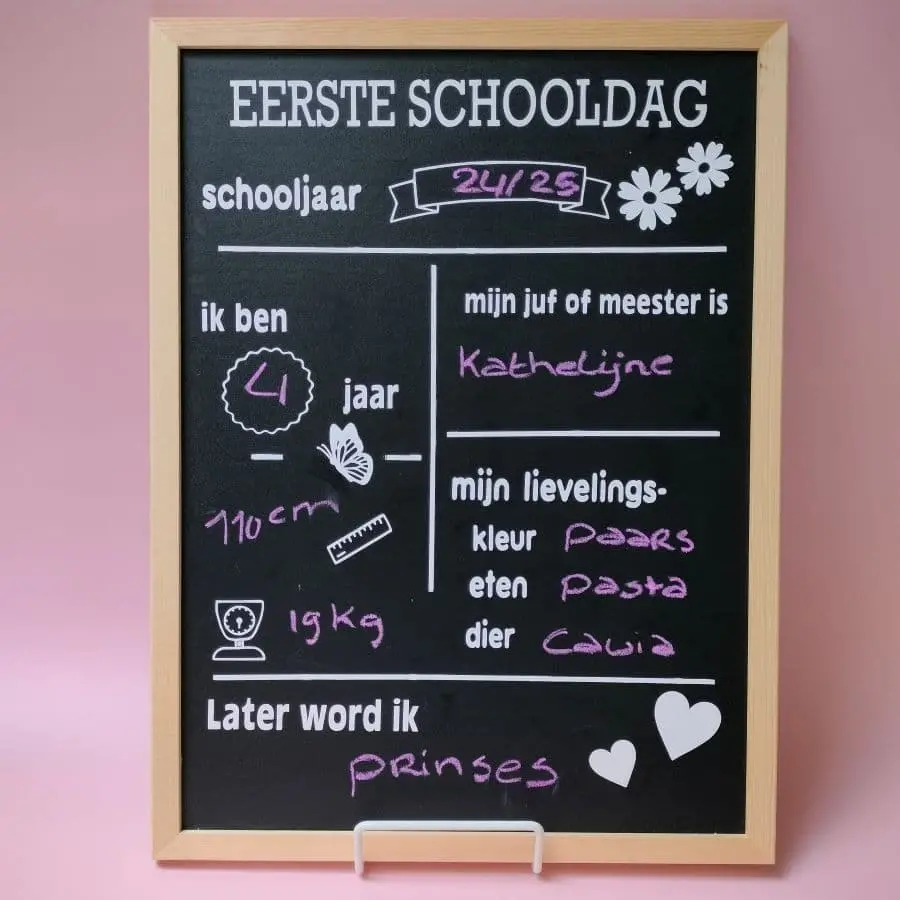 EERSTE SCHOOLDAG
schooljaar 24/25
ik ben
4 jaar
110cm
19kg
mijn juf of meester is
Kathelijne
mijn lievelings-
kleur paars
eten pasta
dier cavia
Later word ik
prinses